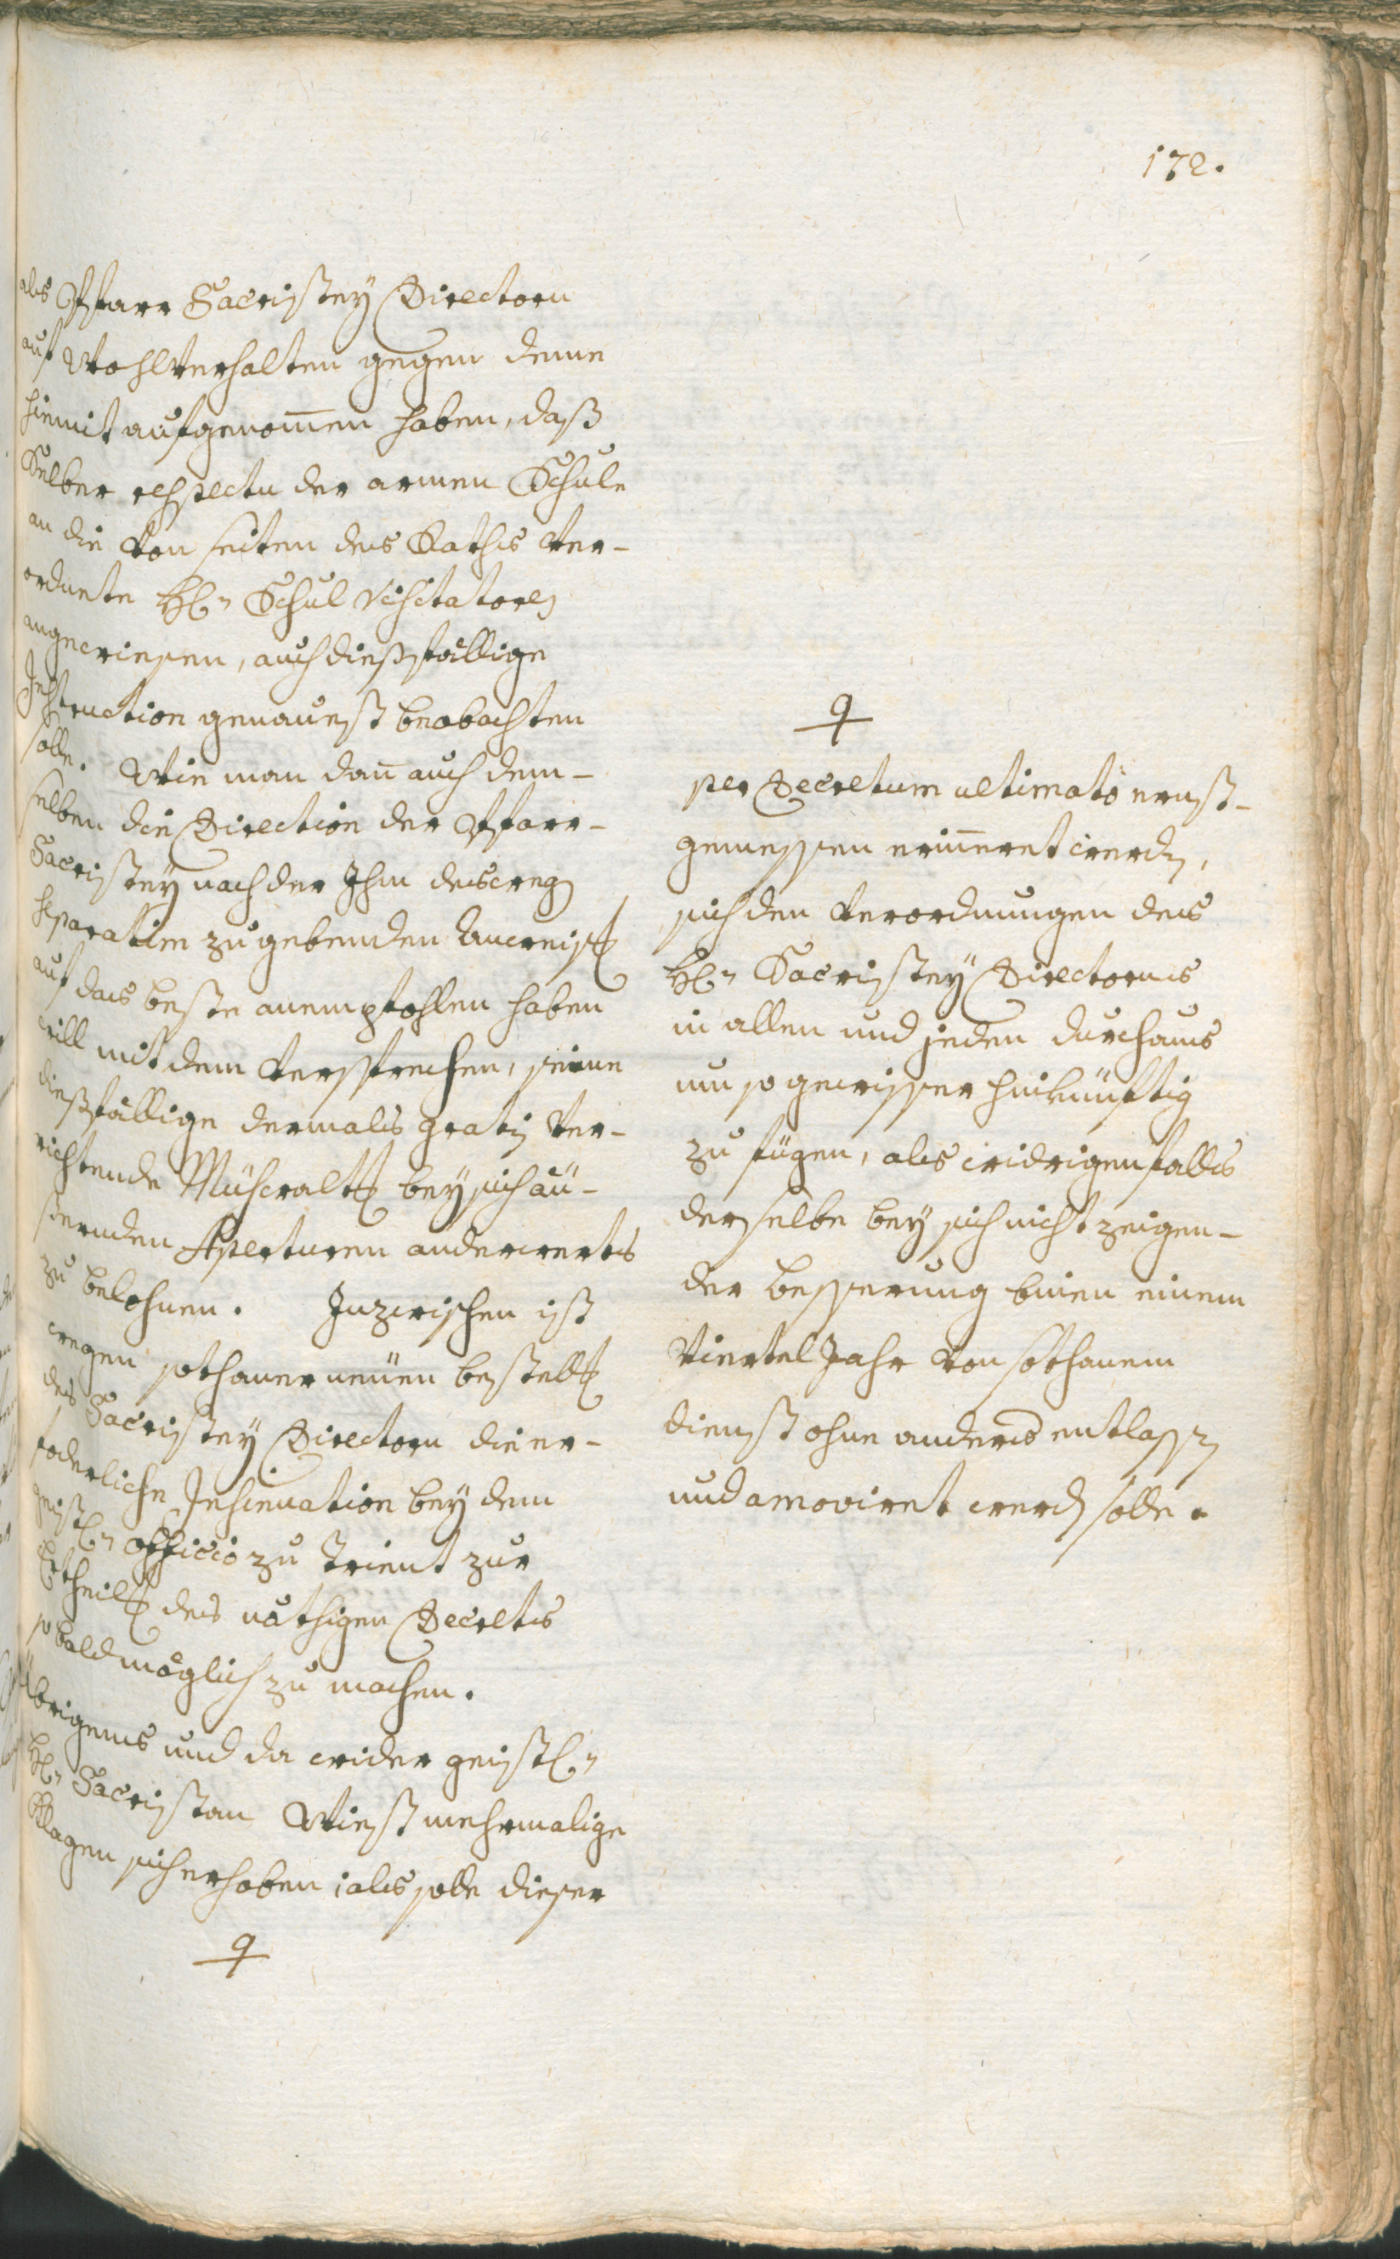 172.
als Pfarr Sacristey Directorn
auf Wohlverhalten gegen deme
hiemit aufgenom̅en haben, daß
Selber respectu der armen Schule
an die von seiten des Raths ver-
ordnete H(errn) Schul Visitatores
angewiesen, auch dießfällige
Instruction genauest beobachten
solle. Wie man dan̅ auch dem-
selben die Direction der Pfarr-
Sacristey nach der Ihm deswegen
separatim zugebenden Anweisung
auf das beste anempfohlen haben
will mit dem versprechen, seine
dießfällige dermals gratis ver-
richtende Mühewaltung bey sich äü-
ßernden Aperturen anderwerts
zu belohnen. Inzwischen ist
wegen sothaner neüen bestellung
des Sacristey Directorn die er-
foderliche Insinuation bey dem
geistl. officio zu Trient zur
Ertheilung des nöthigen Decrets
so bald möglich zu machen.
Übrigens und da wider geistl.
H(errn) Sacristan Wiest mehrmalige
Klagen sich erhoben; als solle dieser
per Decretum ultimatò ernst-
gemessen erin̅eret werden,
sich den verordnungen des
H(errn) Sacristey Directorns
in allen und jeden durchaus
um so gewisser hinkünftig
zu fügen, als widrigenfalls
derselbe bey sich nicht zeigen-
der besserung binen einem
Viertel Jahr von sothanem
dienst ohne anders entlassen
und amoviret werden solle.